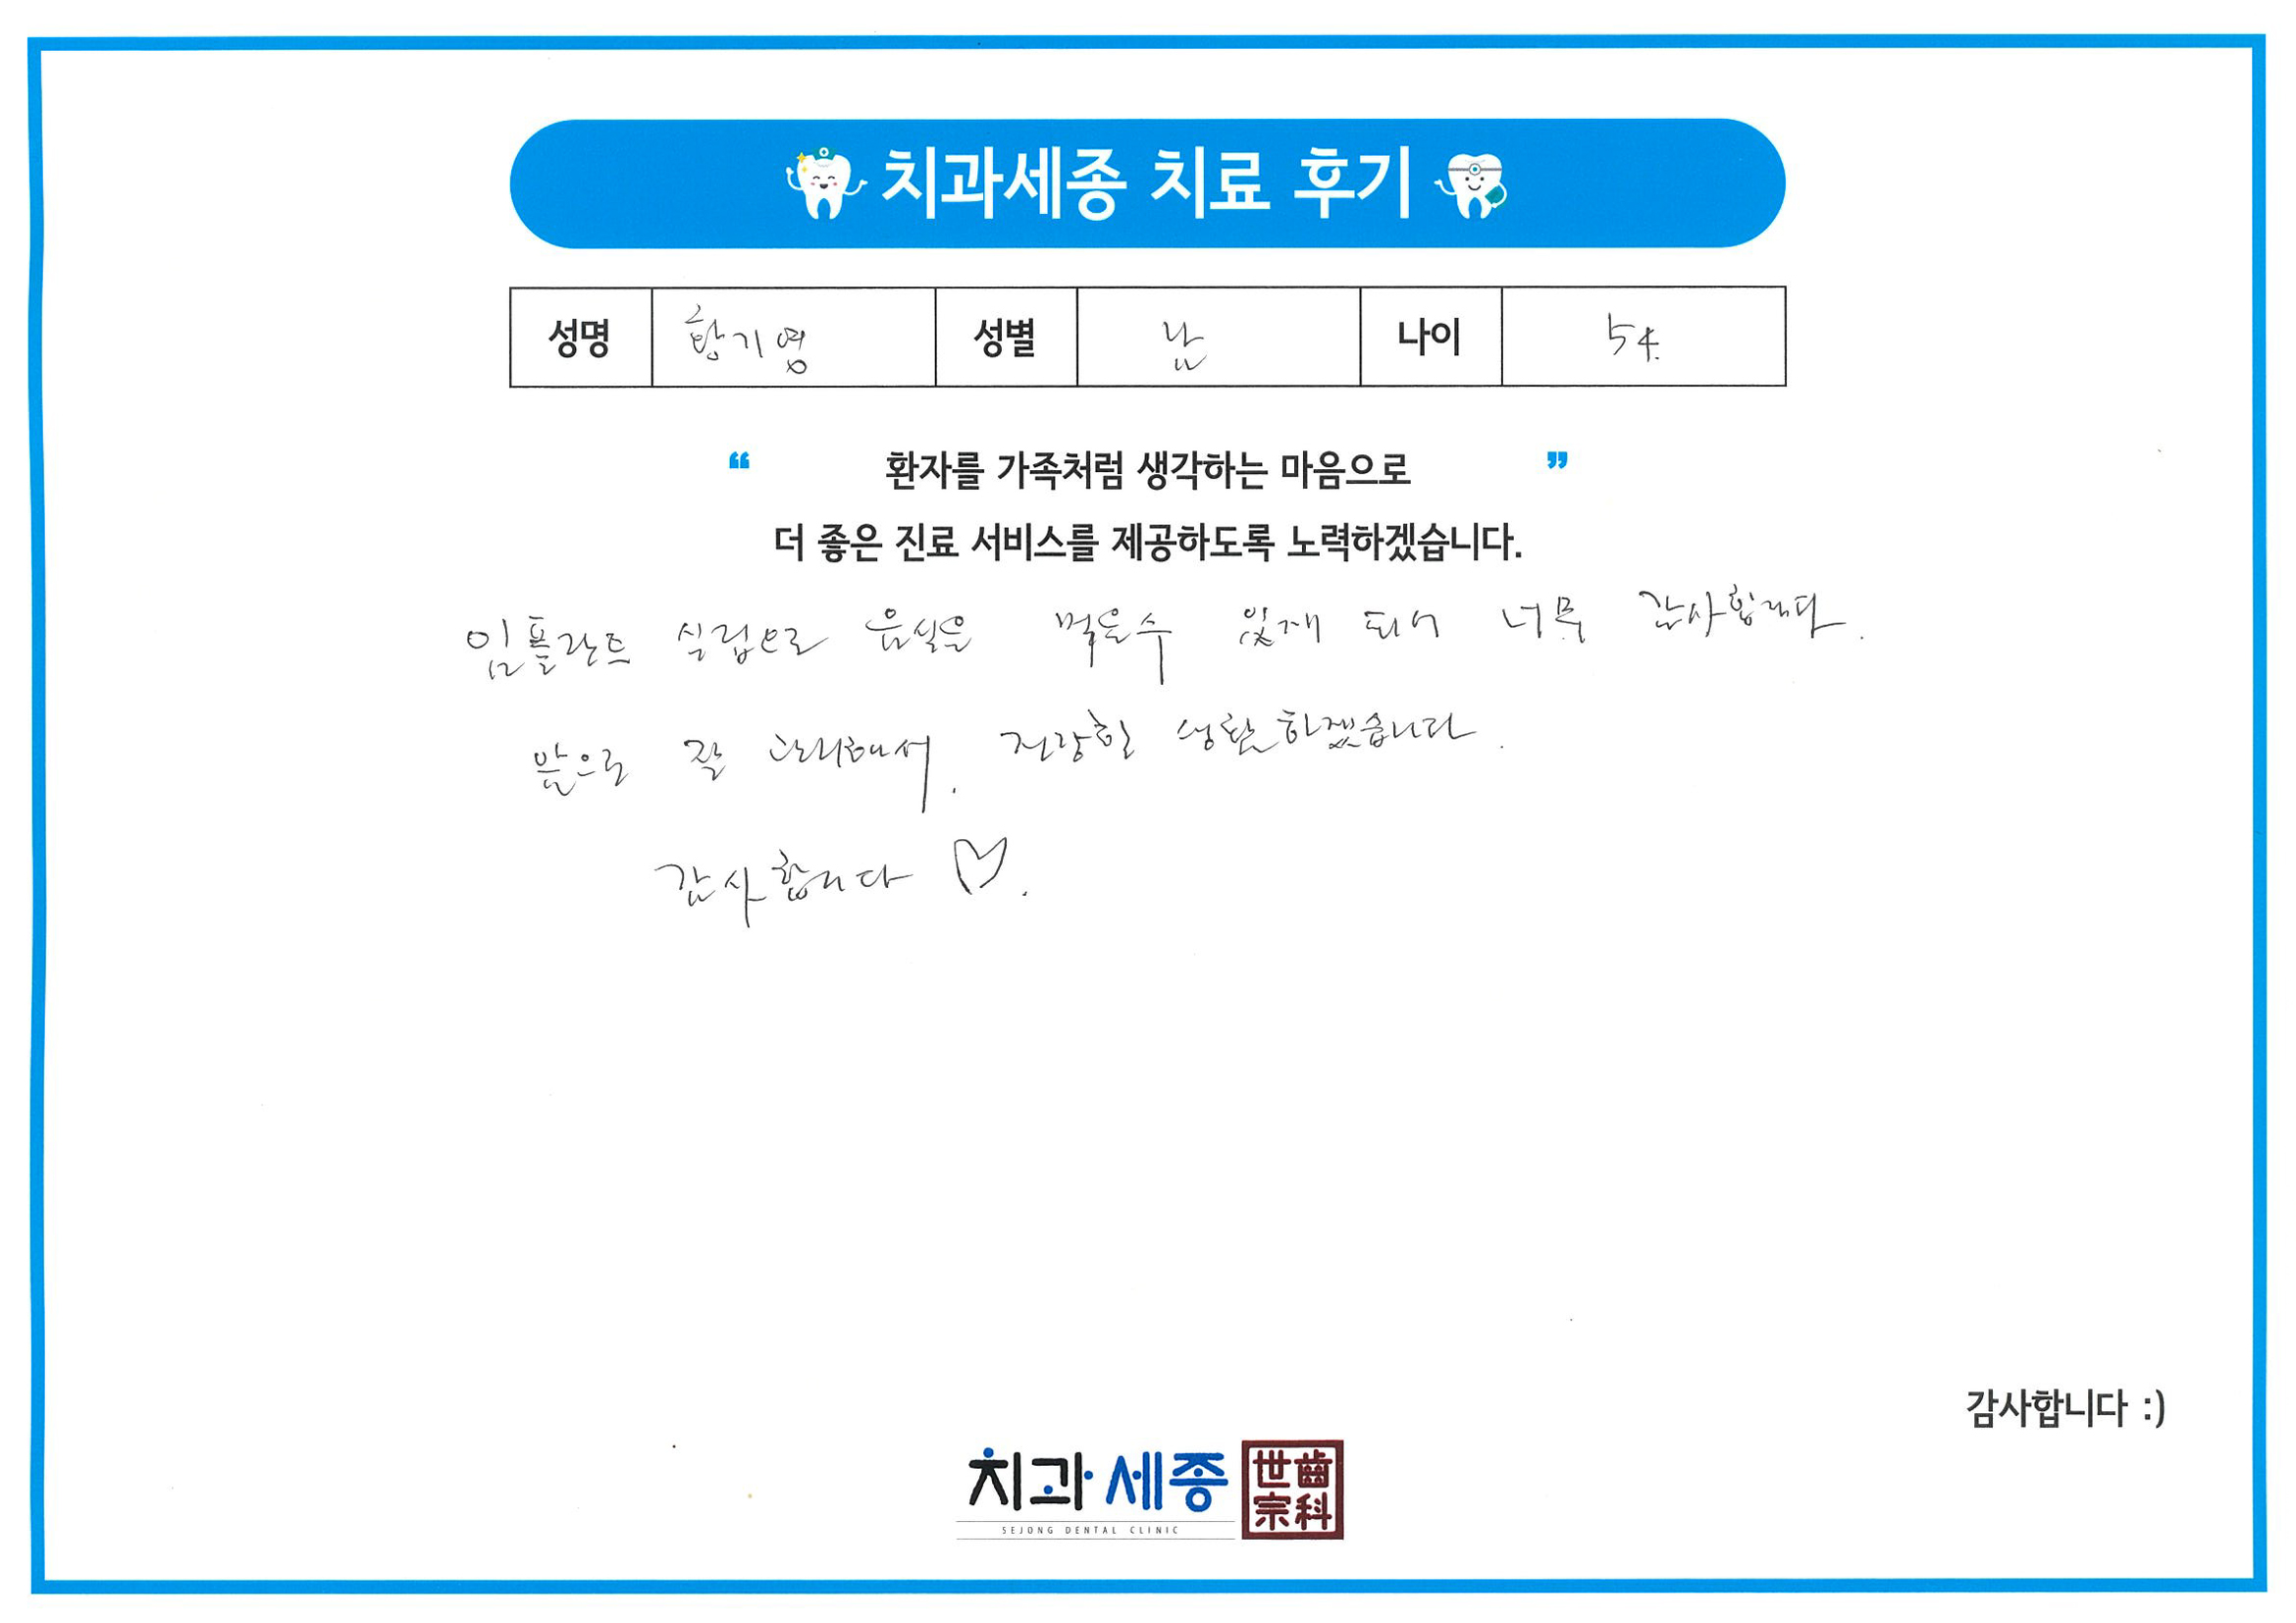 치과세종 치료 후기
성명 황기영 성별 남 나이 54
“ 환자를 가족처럼 생각하는 마음으로 ”
더 좋은 진료 서비스를 제공하도록 노력하겠습니다.
임플란트 식립으로 음식을 먹을수 있게 되어 너무 감사합니다.
앞으로 잘 관리해서. 건강한 생활하겠습니다.
감사합니다 ♡.
감사합니다 :)
치과세종 世齒宗科
SEJONG DENTAL CLINIC